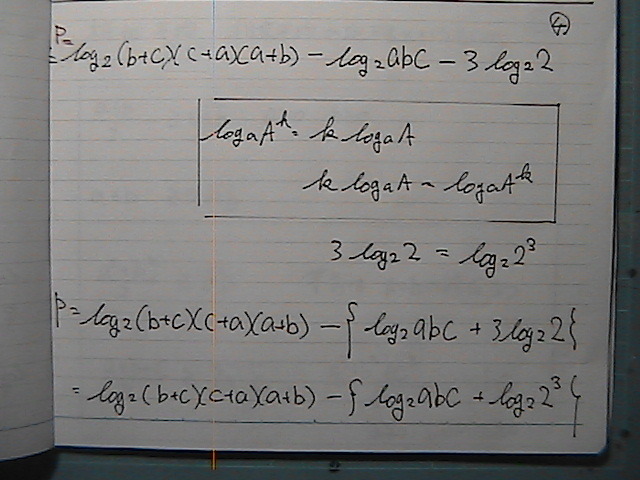 ④
P=
= log₂(b+c)(c+a)(a+b) - log₂abc - 3log₂2
logaAᵏ = k logaA
k logaA = logaAᵏ
3 log₂2 = log₂2³
P = log₂(b+c)(c+a)(a+b) - { log₂abc + 3log₂2 }
= log₂(b+c)(c+a)(a+b) - { log₂abc + log₂2³ }